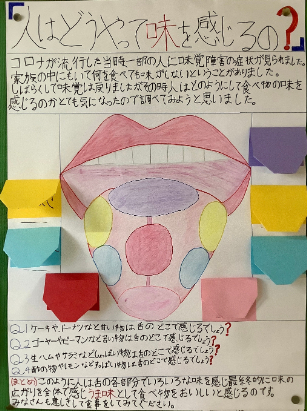 「人はどうやって味を感じるの?」
コロナが流行した当時一部の人に味覚障害の症状が見られました。
家族の中にもいて何を食べても味がしないということがありました。
しばらくして味覚は戻りましたがその時人はどのようにして食べ物の味を
感じるのかとても気になったので調べてみようと思いました。
Q.1 ケーキやドーナツなど甘い物は舌のどこで感じるでしょう?
Q.2 ゴーヤやピーマンなど苦い物は舌のどこで感じるでしょう?
Q.3 生ハムやサラミなどしょっぱい物は舌のどこで感じるでしょう?
Q.4 酢の物やレモンなどすっぱい物は舌のどこで感じるでしょう?
(まとめ)このように人は舌の各部分でいろいろな味を感じ最終的に口の
広がりを全体で感じうま味として食べ物をおいしいと感じるのです。
みなさんも楽しんで食事をしてみてください。